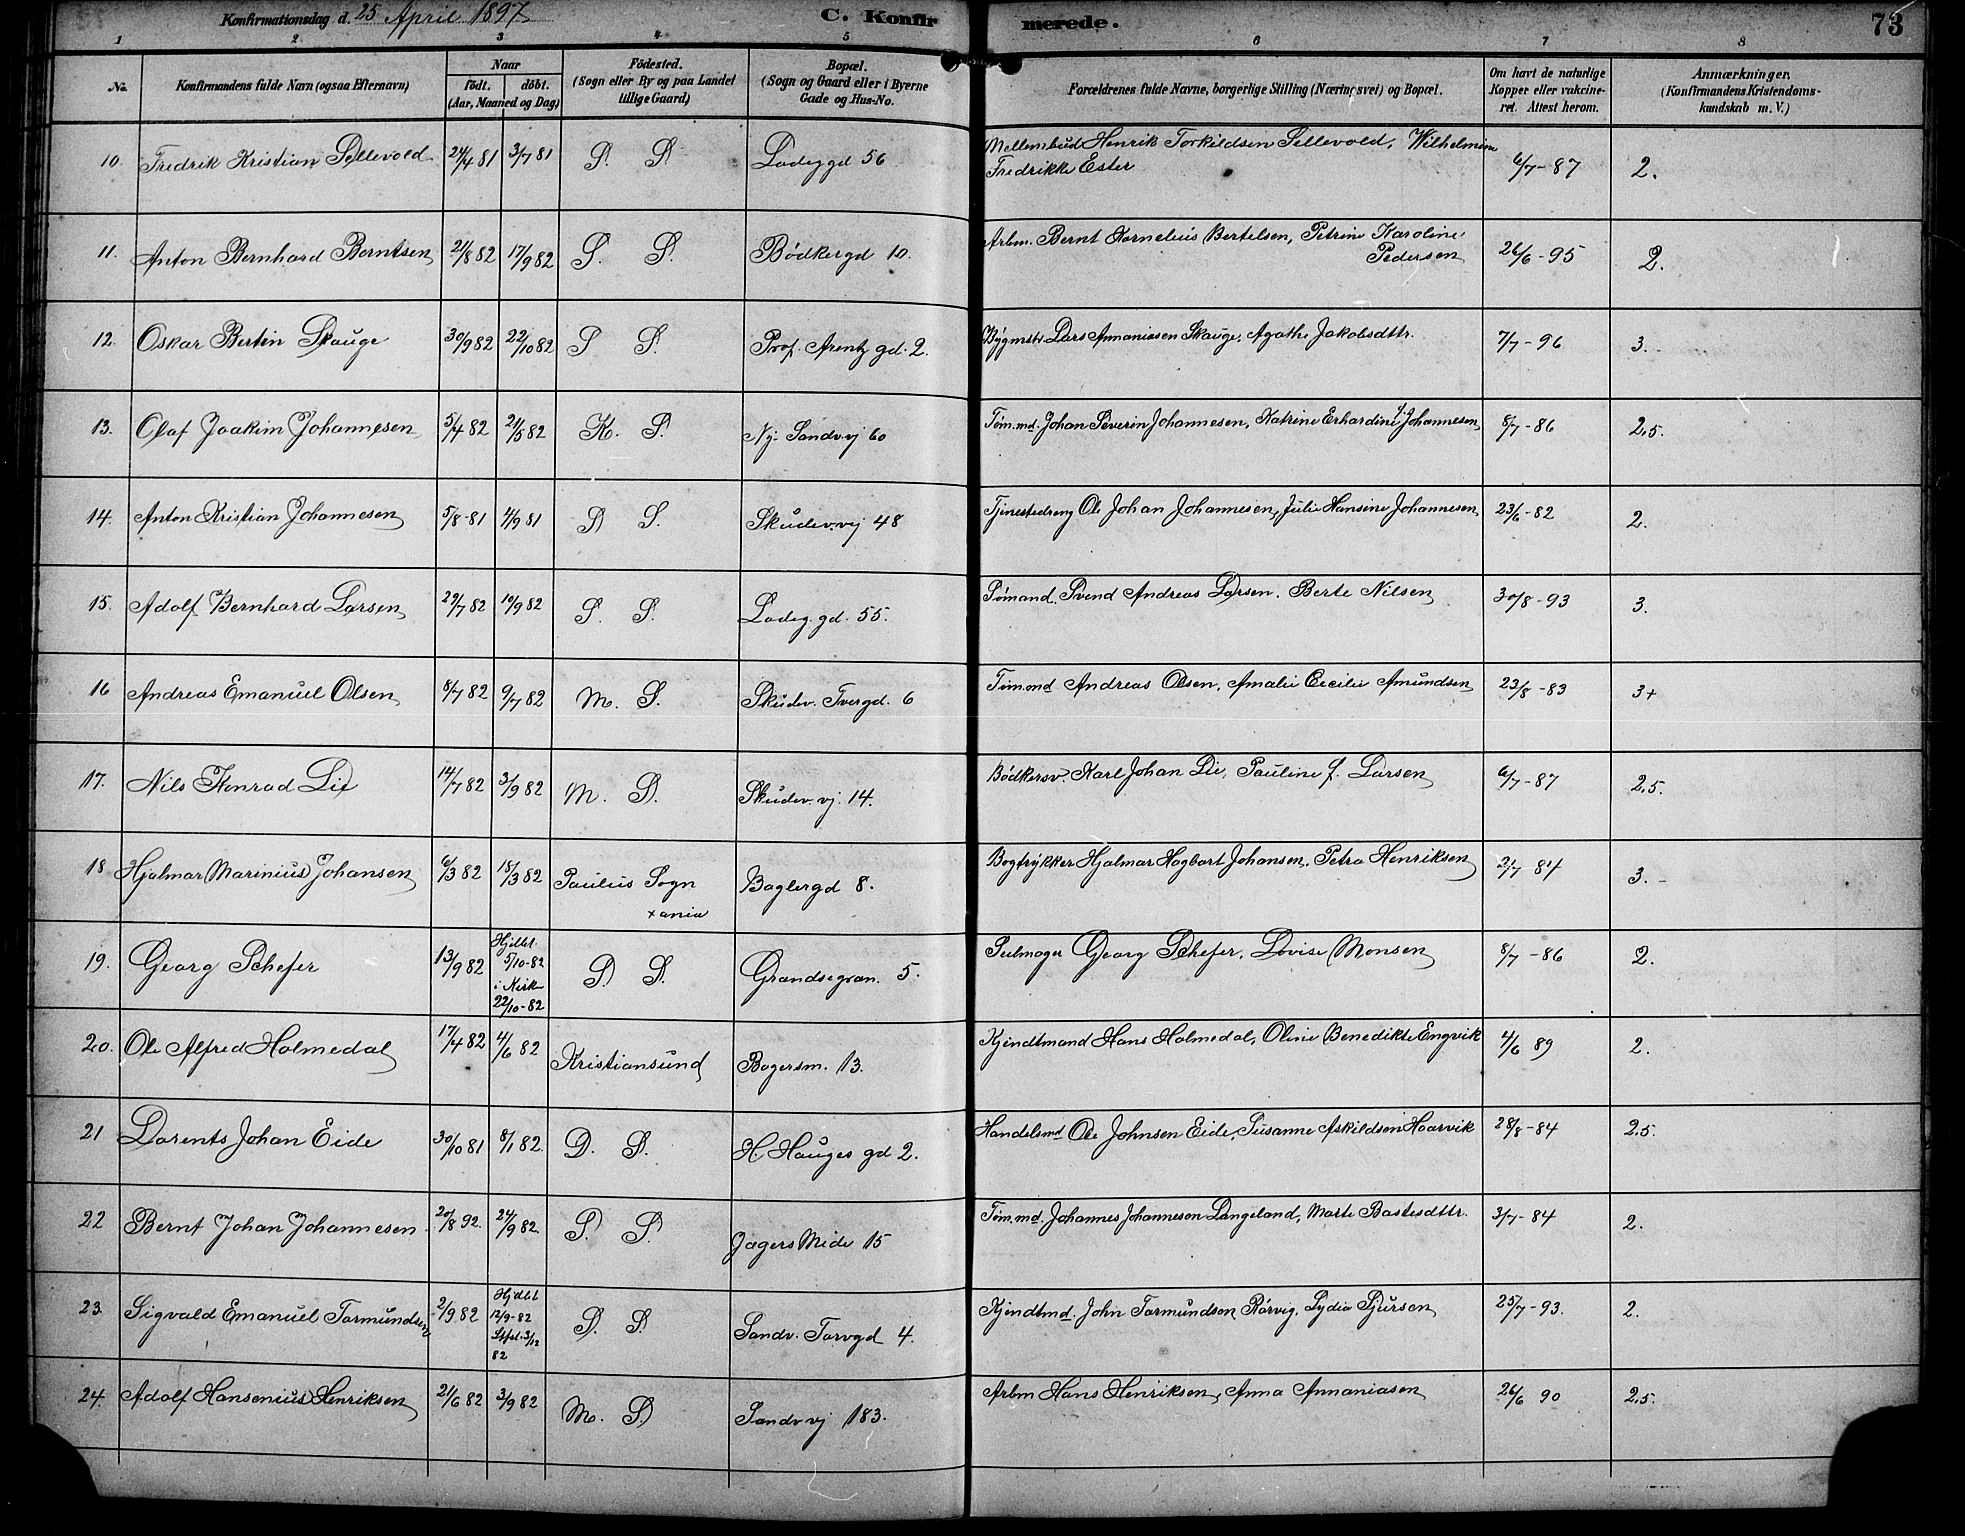 Konfirmationsdag d. 25 April 1897
C. Konfirmerede.
73
1 2 3 4 5 6 7 8
No.
Konfirmandens fulde Navn (ogsaa Efternavn)
Naar
født. døbt.
(Aar, Maaned og Dag)
Födested.
(Sogn eller By og paa Landet
tillige Gaard)
Bopæl.
(Sogn og Gaard eller i Byerne
Gade og Hus-No.
Forældrenes fulde Navne, borgerlige Stilling (Næringsvei) og Bopæl.
Om havt de naturlige
Kopper eller vakcine-
ret. Attest herom.
Anmærkninger.
(Konfirmandens Kristendoms-
kundskab m. V.)
10. Fredrik Kristian Sellevold 24/4 81 3/7 81 S. S. Ladeggd 56 Mellembud Henrik Torkildsen Sellevold, Wilhelmine
Fredrikke Ester 6/7-87 2.
11. Anton Bernhard Berntsen 21/8 82 17/9 82 S. S. Bødkergd 10. Arbm. Bernt Kornelius Bertelsen, Petrine Karoline
Pedersen 26/6-95 2.
12. Oskar Bertin Skauge 30/9 82 22/10 82 S S. Prof. Arentz gd. 2. Bygmstr Lars Annaniasen Skauge, Agathe Jakobsdttr. 7/7-96 3.-
13. Olaf Joakim Johannesen 5/4 82 21/5 82 K. S. Ny. Sandv.vj 60 Tøm.md. Johan Severin Johannesen, Katrine Erhardine f. Johannesen 8/7-86 2,5.
14. Anton Kristian Johannesen 5/8-81 4/9 81 S S. Skudev.vej 48 Tjenestedreng Ole Johan Johannesen, Julie Hansine Johannesen 23/6-82 2.
15. Adolf Bernhard Larsen 29/7 82 10/9 82 S. S. Ladeg. gd. 55. Sømand. Svend Andreas Larsen. Berte Nilsen 30/8-93 3.
16 Andreas Emanuel Olsen 8/7 82 9/7 82 M. S. Skudev. Tvergd. 6 Tømmd Andreas Olsen, Amalie Cecilie Amundsen 23/8-83 3+
17. Nils Konrad Lie 14/7 82 3/9 82 M. S. Skudev. vj. 14. Bødkersv. Karl Johan Lie, Pauline f. Larsen 6/7-87 2,5.
18. Hjalmar Marinius Johansen 6/3 82 18/3 82 Paulus Sogn
xania Baglergd 8. Bogtrykker Hjalmar Hagbart Johansen, Petra Henriksen 2/7 84 3.-
19. Georg Schefer 13/9 82 Hjdbt.
5/10-82
i Kirke
22/10-82 S. S. Grandsegran. 5. Seilmager Georg Schefer, Lovise Monsen 8/7-86 2.
20. Ole Alfred Holmedal 17/4 82 4/6 82 Kristiansund Bagersm. 13. Kjendtmand Hans Holmedal, Oline Benedikte Engvik 4/6 89 2.
21 Lorents Johan Eide 30/10 81 8/1 82. D. S. H. Hauges gd 2. Handelsmd Ole Johnsen Eide, Susanne Askildsen Haarvik 28/8-84 2,5.
22 Bernt Johan Johannesen 20/8 92. 24/9 82. S. S. Jægers Minde 15 Tøm.md. Johannes Johannesen Langeland, Marte Bastesdttr. 3/7-84 2.
23. Sigvald Emanuel Tormundsen 2/9 82 Hjdbt
12/9-82
Stfst. 3/12
82 S. S. Sandv. Torvgd 4. Kjendtmd. John Tormundsen Rørvig, Lydia Sjursen 25/7-93. 2.
24. Adolf Hansenius Henriksen 21/6 82 3/9 82 M. S. Sandv vj 183. Arbm Hans Henriksen, Anna Annaniasen 26/6 90 2,5.